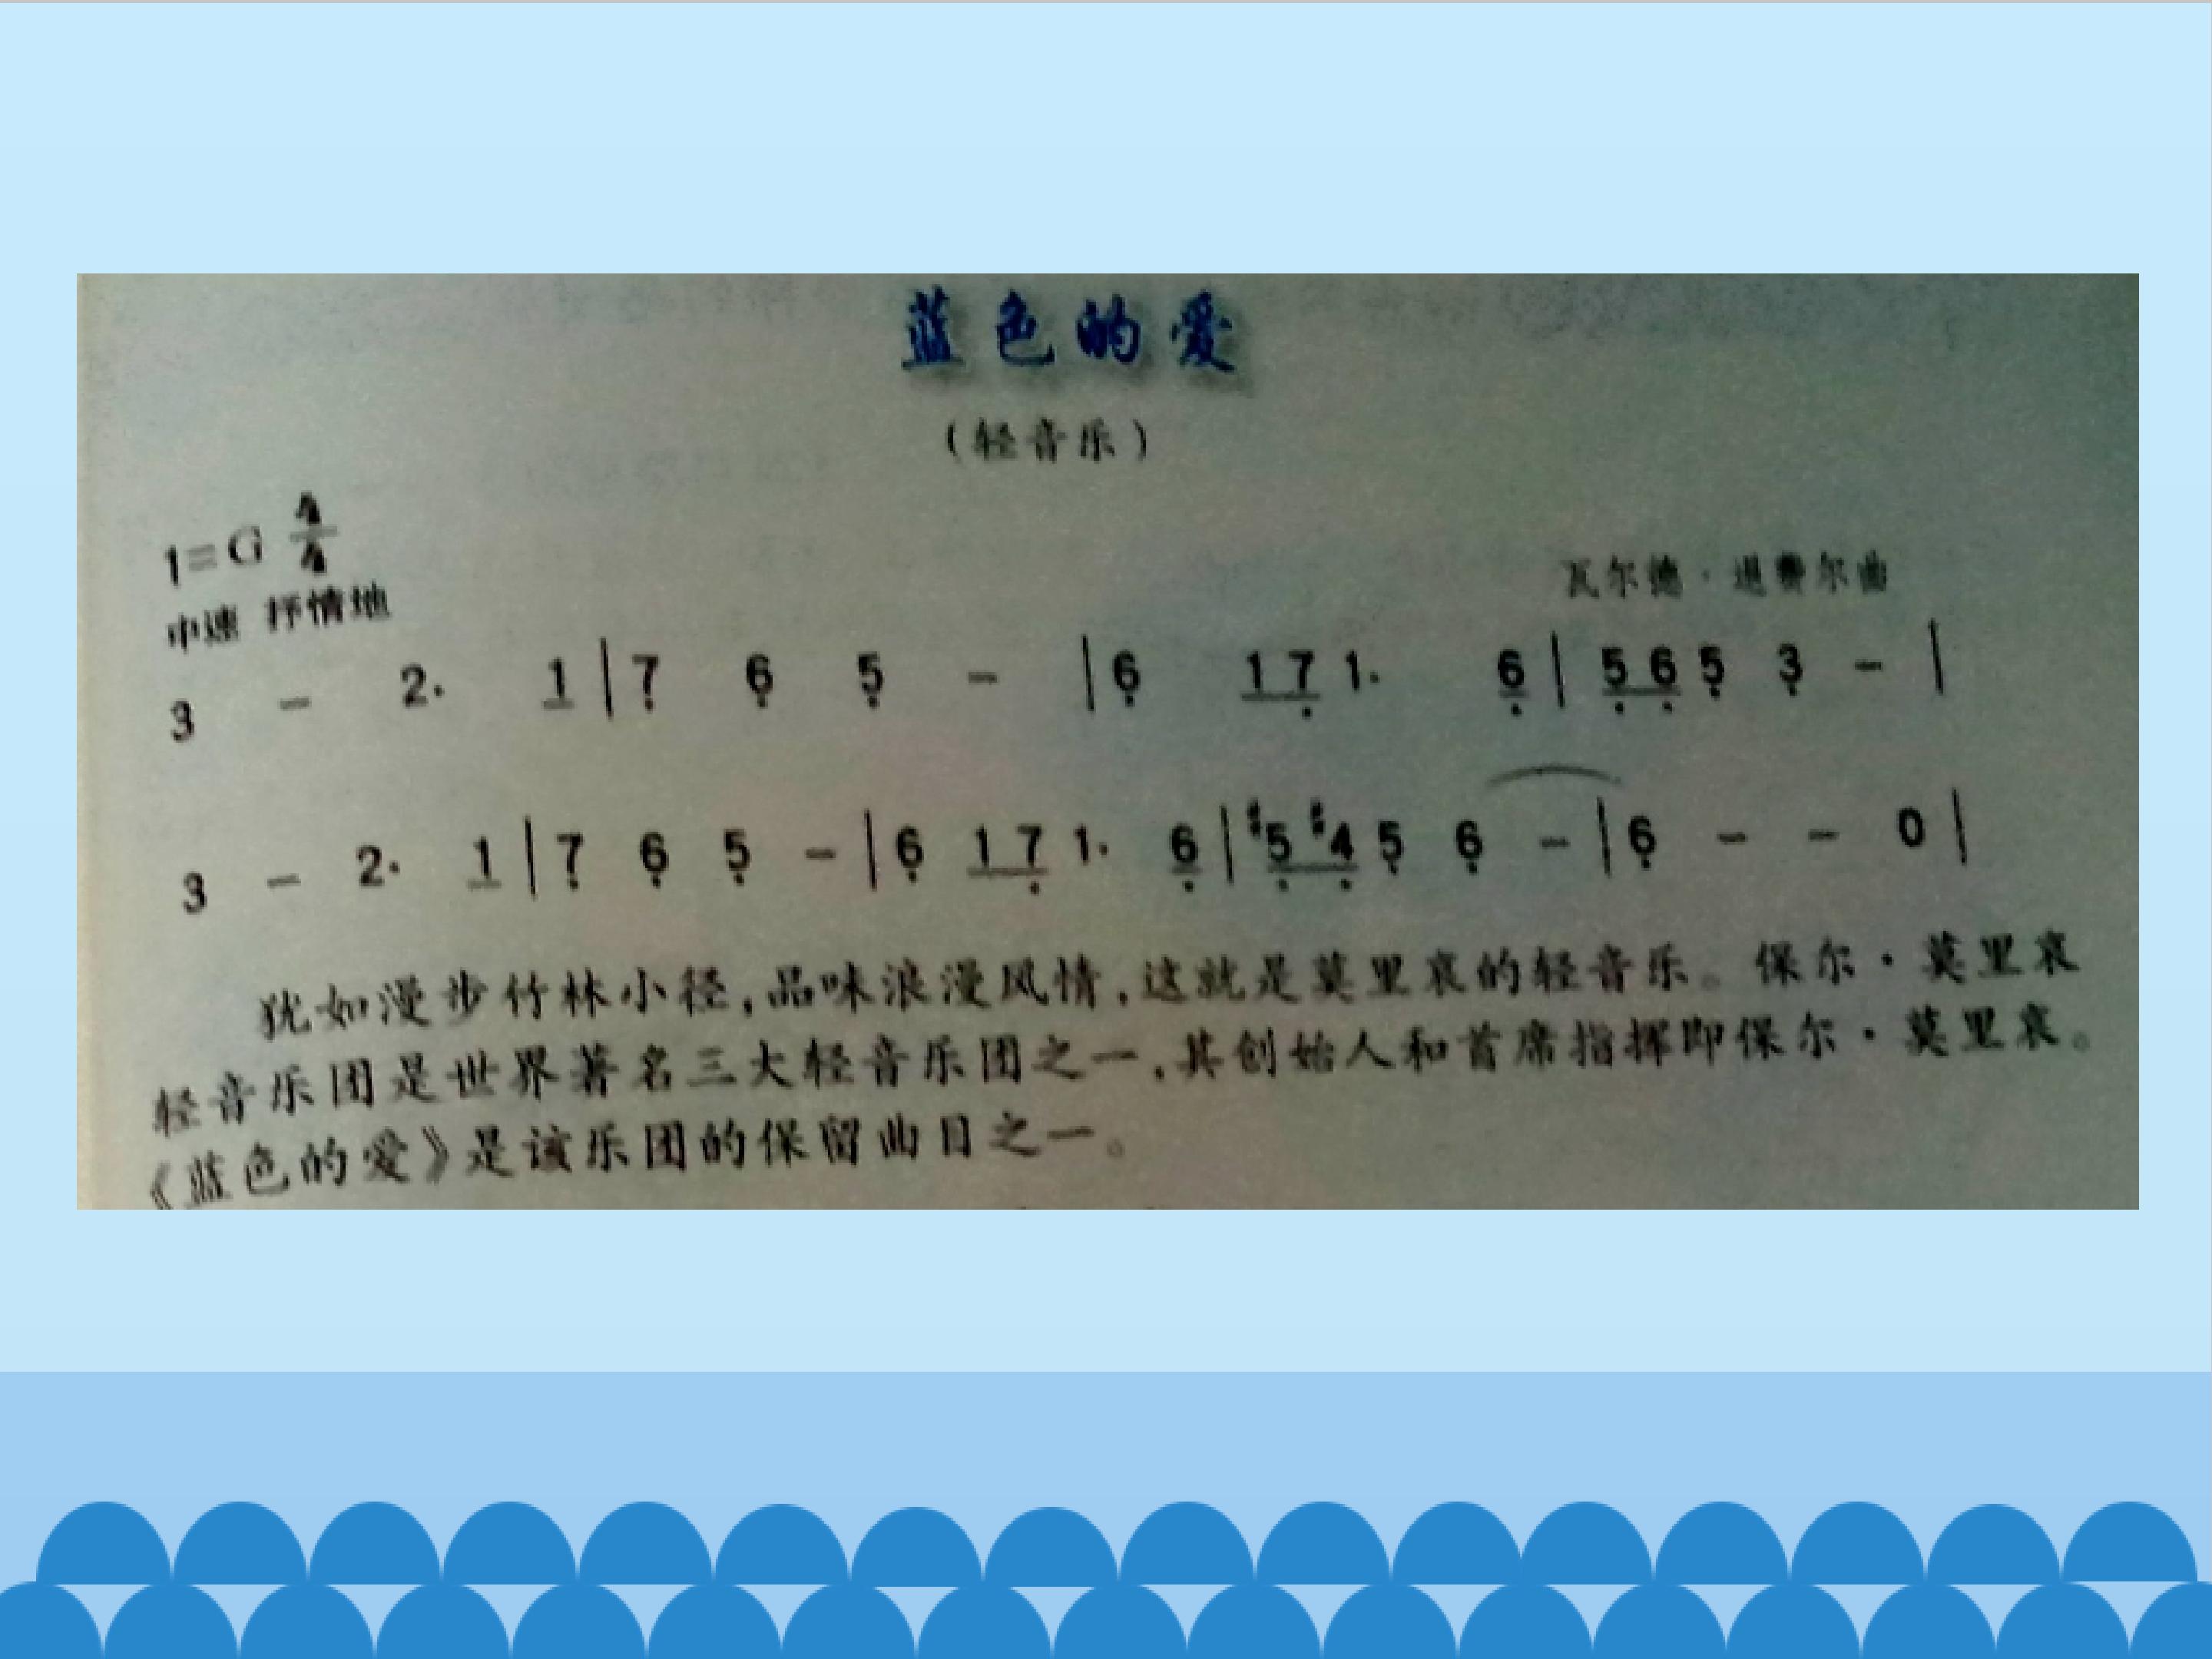 蓝色的爱
(轻音乐)
1=G 4/4
中速 抒情地
瓦尔德·退费尔曲
3 - 2. 1 | 7̣ 6̣ 5̣ - | 6̣ 1 7̣ 1. 6̣ | 5̣ 6̣ 5̣ 3̣ - |
3 - 2. 1 | 7̣ 6̣ 5̣ - | 6̣ 1 7̣ 1. 6̣ | #5̣ #4̣ 5̣ 6̣ - | 6̣ - - 0 |
犹如漫步竹林小径,品味浪漫风情,这就是莫里哀的轻音乐。保尔·莫里哀
轻音乐团是世界著名三大轻音乐团之一,其创始人和首席指挥即保尔·莫里哀。
《蓝色的爱》是该乐团的保留曲目之一。